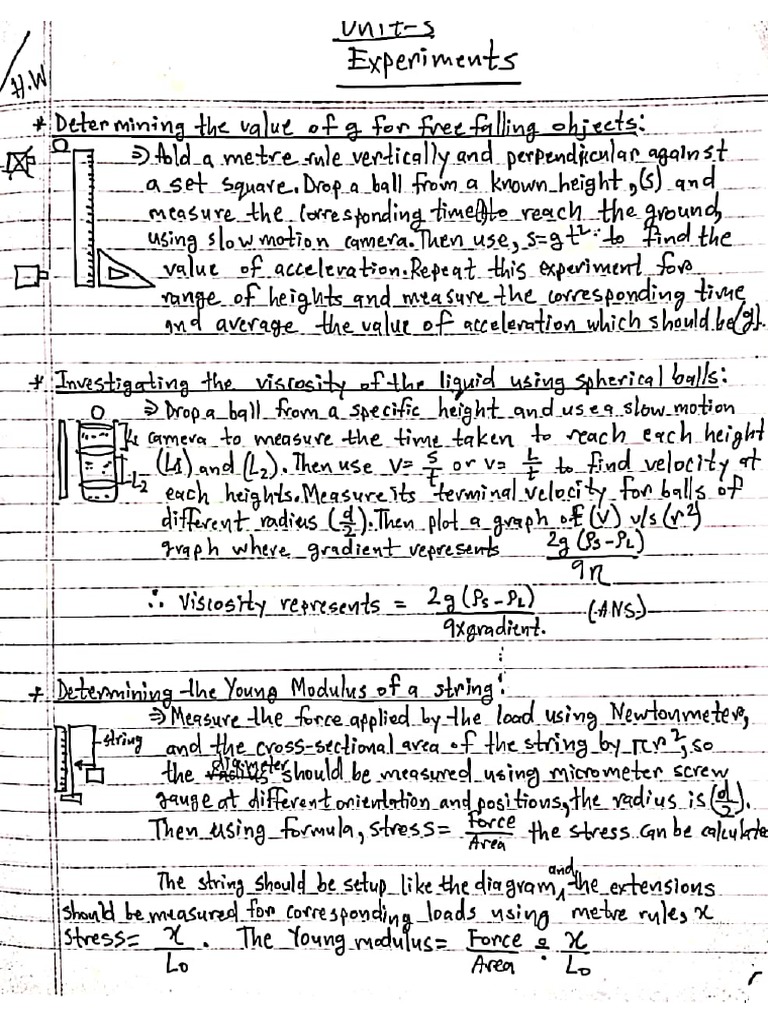 Unit-5
Experiments
H.W
* Determining the value of g for free falling objects:
⇒ Hold a metre rule vertically and perpendicular against
a set square. Drop a ball from a known height, (s) and
measure the corresponding time(t) to reach the ground,
using slow motion camera. Then use, s=gt² to find the
value of acceleration. Repeat this experiment for
range of heights and measure the corresponding time
and average the value of acceleration which should be (g).
* Investigating the viscosity of the liquid using spherical balls:
⇒ Drop a ball from a specific height and use a slow motion
L1 camera to measure the time taken to reach each height
L2 (L1) and (L2). Then use v= s/t or v= L/t to find velocity at
each heights. Measure its terminal velocity for balls of
different radius (d/2). Then plot a graph of (v) v/s (r²)
graph where gradient represents 2g(ρs-ρL)/9η
∴ Viscosity represents = 2g(ρs-ρL)/9xgradient. (ANS)
* Determining the Young Modulus of a string:
⇒ Measure the force applied by the load using Newtonmeter,
string and the cross-sectional area of the string by πr², so
the should be measured using micrometer screw
gauge at different orientation and positions, the radius is (d/2).
Then using formula, stress= Force/Area the stress can be calculate
The string should be setup like the diagram, and the extensions
should be measured for corresponding loads using metre rule, x
Stress= x/L0. The Young modulus= Force/Area ÷ x/L0